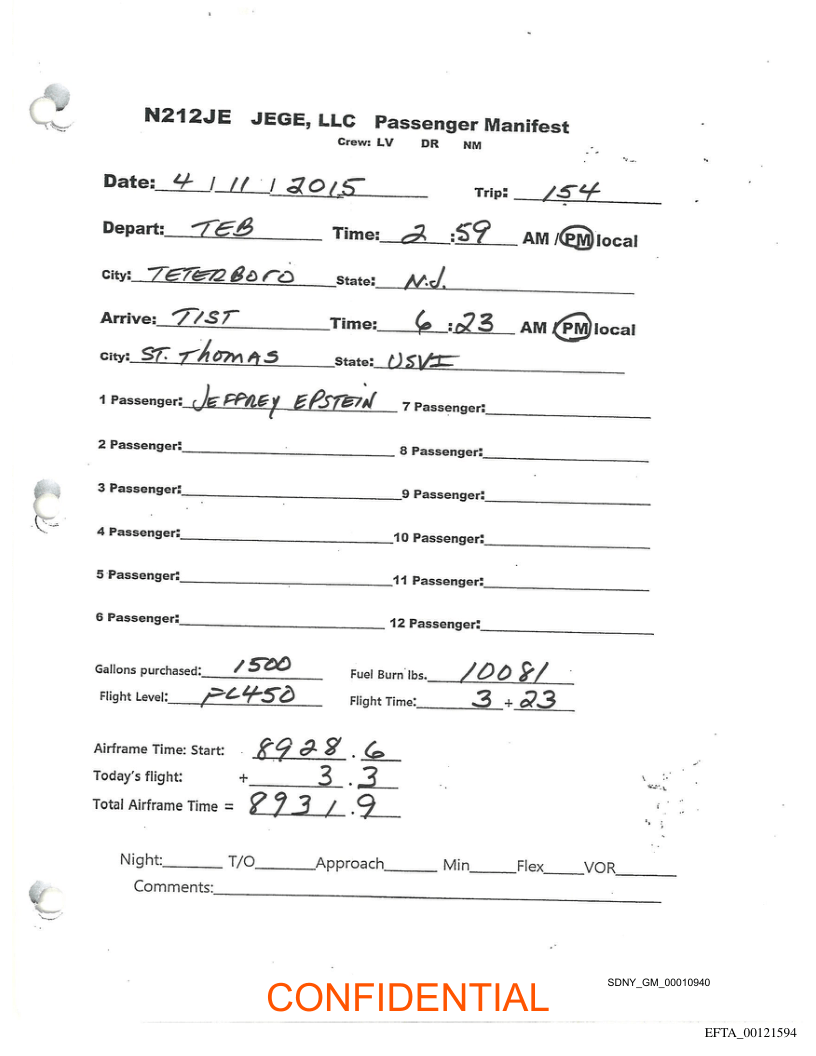 N212JE JEGE, LLC Passenger Manifest
Crew: LV DR NM
Date: 4 / 11 / 2015 Trip: 154
Depart: TEB Time: 2 :59 AM / PM local
City: TETERBORO State: N.J.
Arrive: TIST Time: 6 :23 AM / PM local
City: ST. THOMAS State: USVI
1 Passenger: JEFFREY EPSTEIN 7 Passenger:
2 Passenger: 8 Passenger:
3 Passenger: 9 Passenger:
4 Passenger: 10 Passenger:
5 Passenger: 11 Passenger:
6 Passenger: 12 Passenger:
Gallons purchased: 1500 Fuel Burn lbs. 10081
Flight Level: FL450 Flight Time: 3 + 23
Airframe Time: Start: 8928.6
Today's flight: + 3.3
Total Airframe Time = 8931.9
Night: T/O Approach Min Flex VOR
Comments:
SDNY_GM_00010940
CONFIDENTIAL
EFTA_00121594